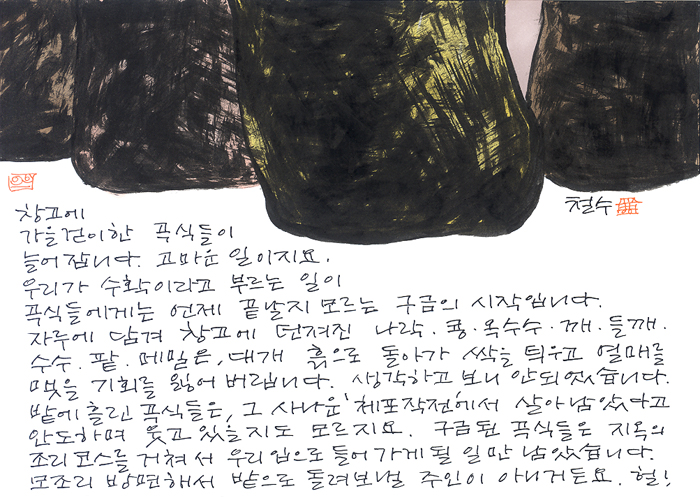 철수
창고에
가을걷이한 곡식들이
늘어갑니다. 고마운 일이지요.
우리가 수확이라고 부르는 일이
곡식들에게는 언제 끝날지 모르는 구금의 시작입니다.
자루에 담겨 창고에 던져진 나락·콩·옥수수·깨·들깨·
수수·팥·메밀은, 대개 흙으로 돌아가 싹을 틔우고 열매를
맺을 기회를 잃어 버립니다. 생각하고 보니 안되었습니다.
밭에 흘린 곡식들은, 그 사나운 '체포작전'에서 살아남았다고
안도하며 웃고 있을지도 모르지요. 구금된 곡식들은 지옥의
조리코스를 거쳐서 우리입으로 들어가게 될 일만 남았습니다.
모조리 방면해서 밭으로 돌려보낼 주인이 아니거든요. 헐!